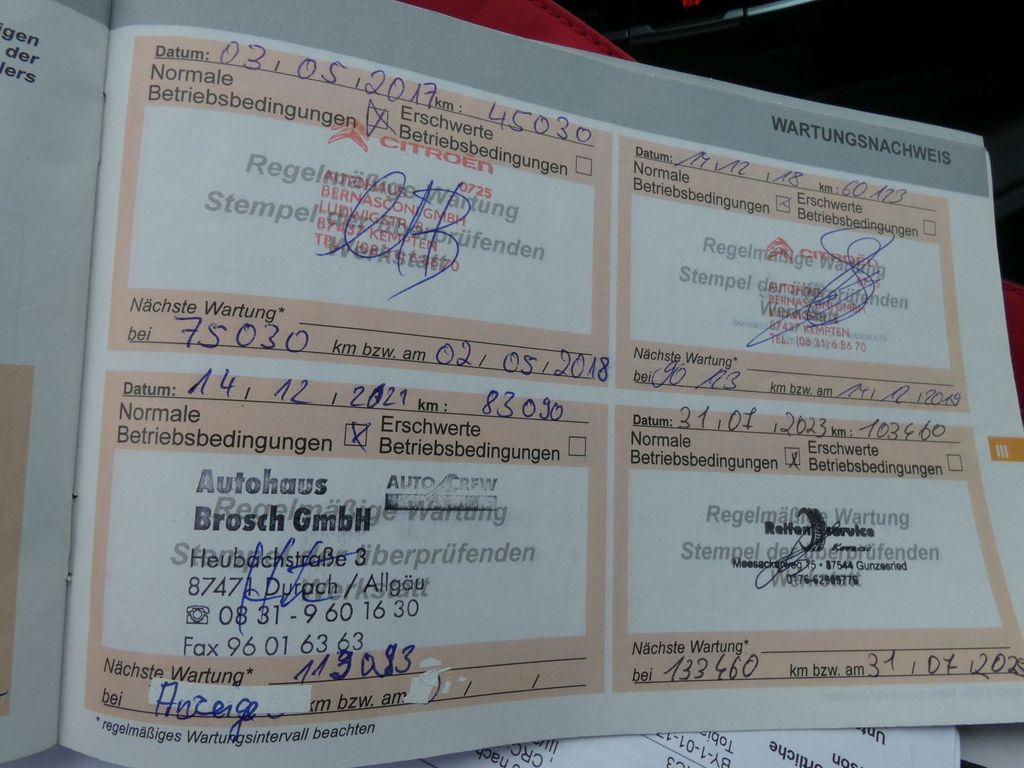 igen
der
lers
WARTUNGSNACHWEIS
Datum: 03.05.2017 km: 45030
Normale
Betriebsbedingungen
Erschwerte
Betriebsbedingungen
CITROËN
Regelmäßige Wartung
Stempel der überprüfenden
Werkstatt
AUTOHAUS 0725
BERNASCONI GMBH
LUDWIGSTR.
87437 KEMPTEN
TEL.: (0831) 6 86 70
Nächste Wartung*
bei 75030 km bzw. am 02.05.2018
Datum: 14.12.18 km: 60123
Normale
Betriebsbedingungen
Erschwerte
Betriebsbedingungen
CITROËN
Regelmäßige Wartung
Stempel der überprüfenden
Werkstatt
AUTOHAUS
BERNASCONI GMBH
LUDWIGSTR.
87437 KEMPTEN
TEL.: (08 31) 6 86 70
Nächste Wartung*
bei 90123 km bzw. am 14.12.2019
Datum: 14.12.2021 km: 83090
Normale
Betriebsbedingungen
Erschwerte
Betriebsbedingungen
Autohaus AUTO CREW
Brosch GmbH
Regelmäßige Wartung
Stempel der überprüfenden
Werkstatt
Heubachstraße 3
87471 Durach / Allgäu
☎ 08 31 - 9 60 16 30
Fax 96 01 63 63
Nächste Wartung* 113093
bei Anzeige km bzw. am:
*regelmäßiges Wartungsintervall beachten
Datum: 31.07.2023 km: 103460
Normale
Betriebsbedingungen
Erschwerte
Betriebsbedingungen
Regelmäßige Wartung
Stempel der überprüfenden
Werkstatt
Reifenservice
87544 Gunzesried
0176-62909776
Nächste Wartung*
bei 133460 km bzw. am 31.07.202
III
BY-1-01-1
Tobia